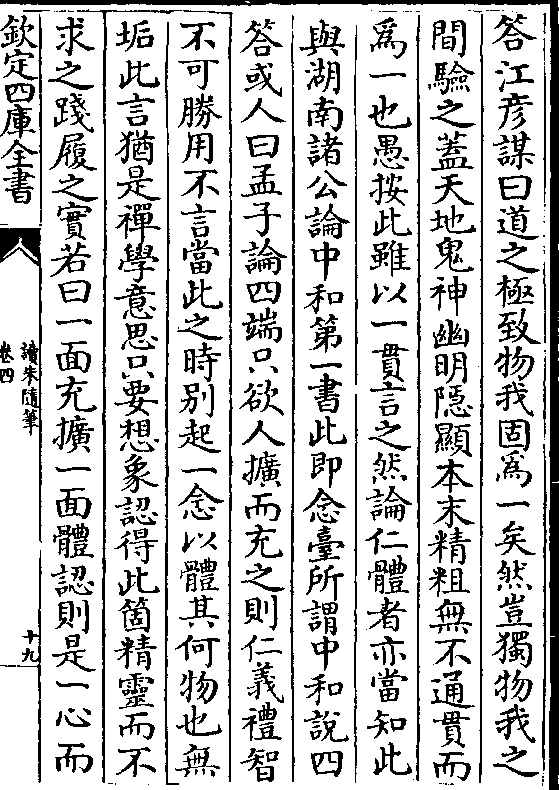 答江彦謀曰道之極致物我固爲一矣然豈獨物我之
間驗之蓋天地鬼神幽明隠顯本末精粗無不通貫而
爲一也愚按此雖以一貫言之然論仁體者亦當知此
與湖南諸公論中和第一書此即念臺所謂中和說四
答或人曰孟子論四端只欲人擴而充之則仁義禮智
不可勝用不言當此之時别起一念以體其何物也無
垢此言猶是禪學意思只要想象認得此箇精靈而不
求之踐履之實若曰一面充擴一面體認則是一心而
欽定四庫全書
讀朱隨筆
卷四
十九